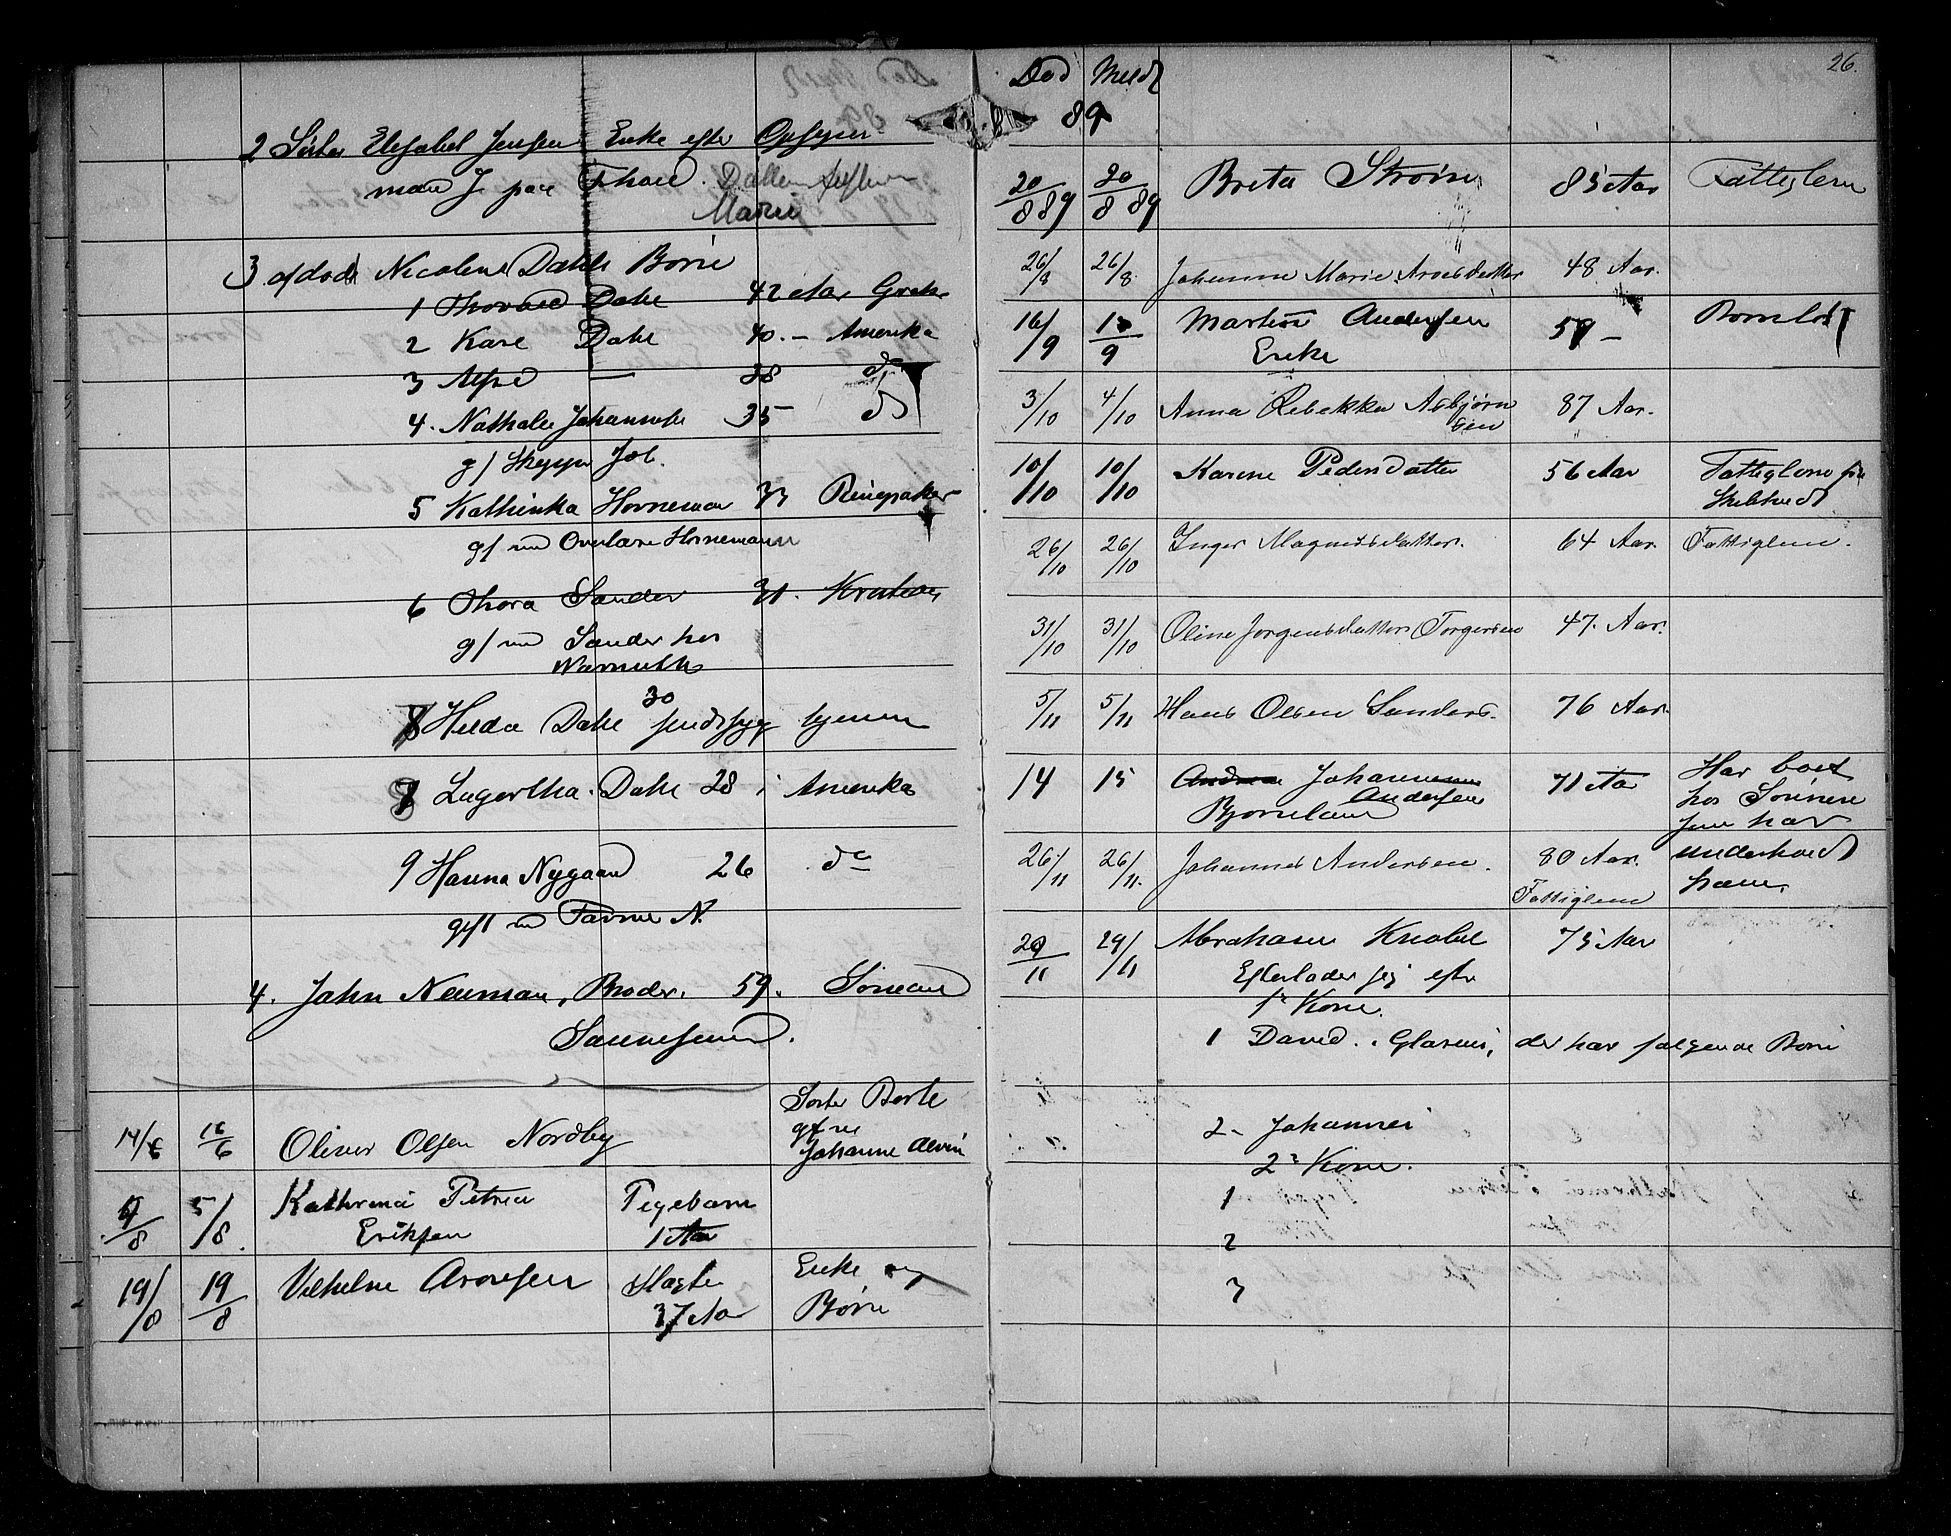 2 Søster Elisabet Jensen Enke efter Opsyns-
mand J
Marie
3 afdøde Nicoline Dahls Børn
1 Thorvald Dahl 42 Aar
2 Kare Dahl 40. — Amerika
3 Alfred — 38 do
4. Nathalie Johannesen 35 do
g/ Skipper Joh.
5 Kathinka Horneman 33 Ringsaker
g/ med Overlærer Hornemann
6 Thora Sander 31.
g/ med Sander hos
Warmuth
30
8 Hilda Dahl sindssyg hjemme
7 Lagertha Dahl 28 i Amerika
9 Hanna Nygaard 26 do
gift m Farmer N.
4. John Neuman, Broder. 59. Sømand
Sannesund.
Søster Berte
14/6 16/6 Oliver Olsen Nordby g/ m
Johanne Alvin
4/8 5/8 Kathrine Petrea Pegebarn
Eriksen 1 Aar
19/8 19/8 Vilhelm Aronsen Slagter Enke og
37 Aar Børn
26.
Død Meldt
89
20/8 89 20/8 89 Breta Strøm 85 Aar Fattiglem
26/8 26/8 Johanne Marie Aroesdatter 48 Aar.
16/9 1 /9 Martin Andersen 59 — Barnløs
Enke
3/10 4/10 Anna Rebekka Asbjørn 87 Aar.
sen
10/10 10/10 Karene Pedersdatter 56 Aar Fattiglem fra
Skebstved
26/10 26/10 Inger Magnusdatter. 64 Aar. Fattiglem.
31/10 31/10 Oline Jørgensdatter Torgersen 47. Aar.
5/11 5/11 Hans Olsen Sanders. 76 Aar.
14 15 Andreas Johannesen 71 Aar Har boet
Andersen hos Sønnen
Bjørneland som har
26/11 26/11. Johannes Andersen. 80 Aar. underholdt
Fattiglem ham.
29/11 29/11 Abraham Knobel 75 Aar
Efterlader sig efter
1e Kone.
1 David. Glarmes, der har følgende Børn
2. Johannes
2e Kone.
1
2
3